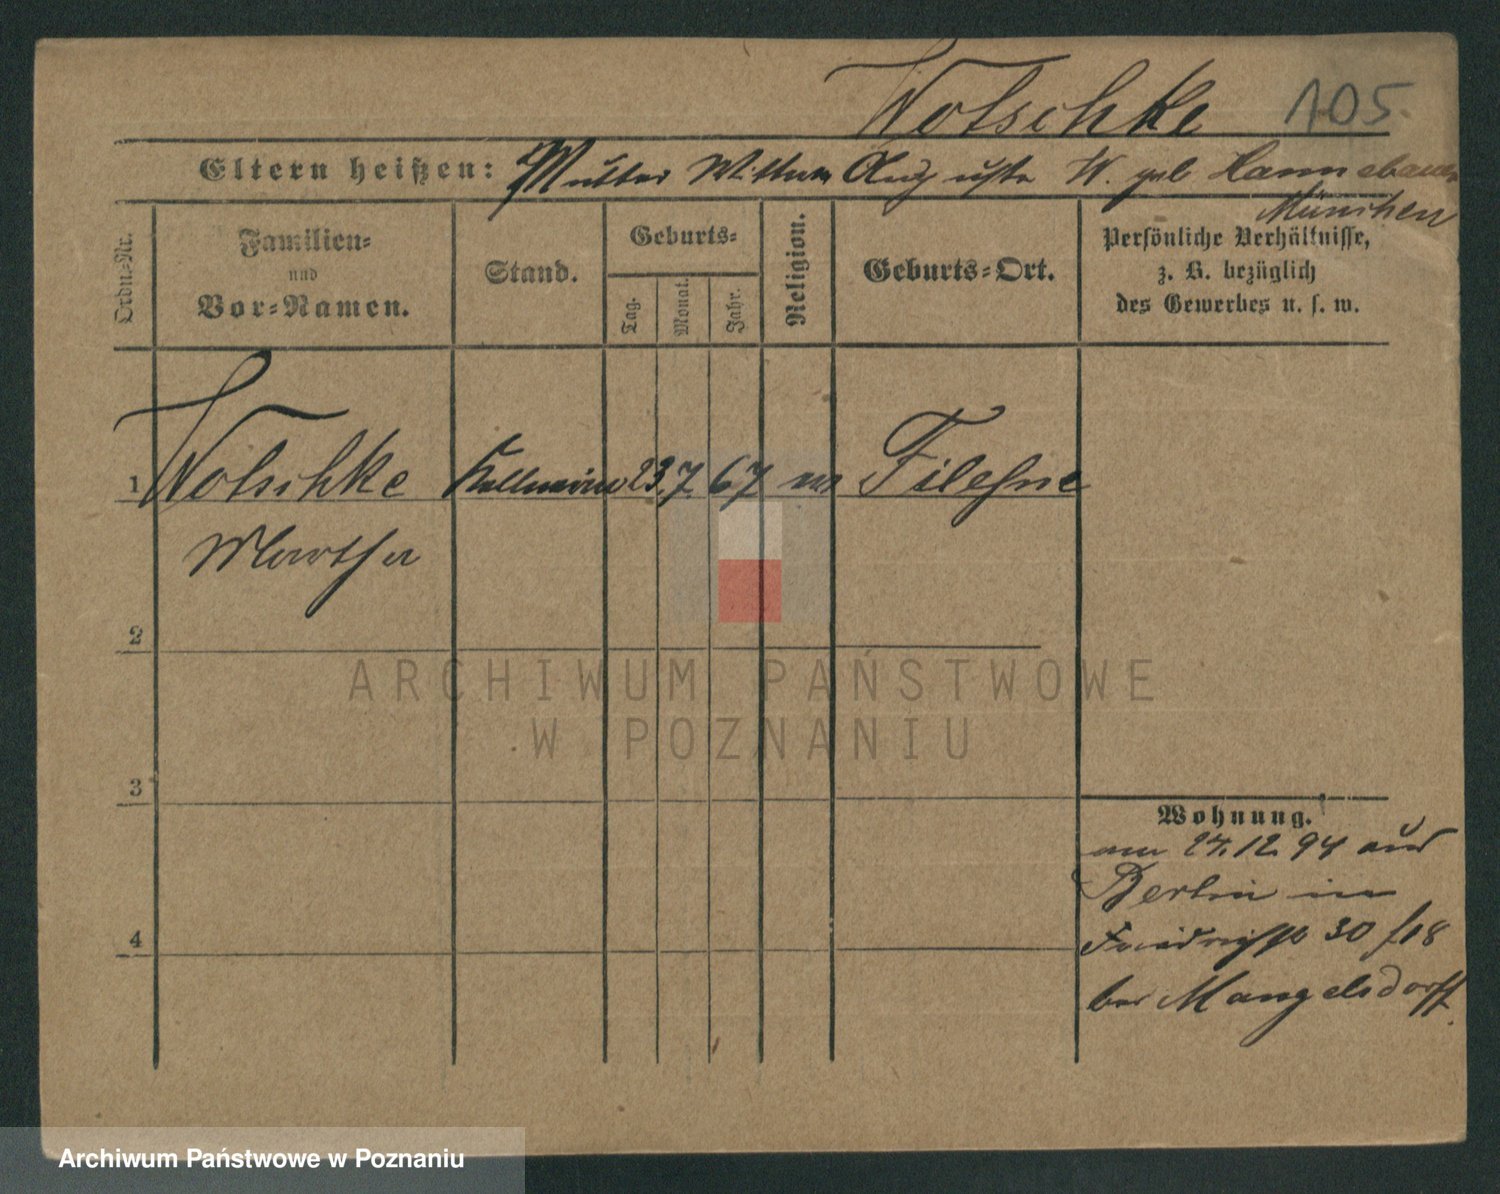 Wotschke 105.
Eltern heißen: Mutter Wittwe Auguste W. geb Hannebauer
München
Ordn=Nr.
Familien=
und
Vor=Namen.
Stand.
Geburts=
Tag.
Monat.
Jahr.
Religion.
Geburts=Ort.
Persönliche Verhältnisse,
z. B. bezüglich
des Gewerbes u. s. w.
1 Wotschke Kellnerin 23 7 67 ev Filehne
Martha
2
3
4
Wohnung.
am 27.12 94 aus
Berlin in
Friedrichstr 30 /18
bei Mangelsdorff.
ARCHIWUM PAŃSTWOWE
W POZNANIU
Archiwum Państwowe w Poznaniu